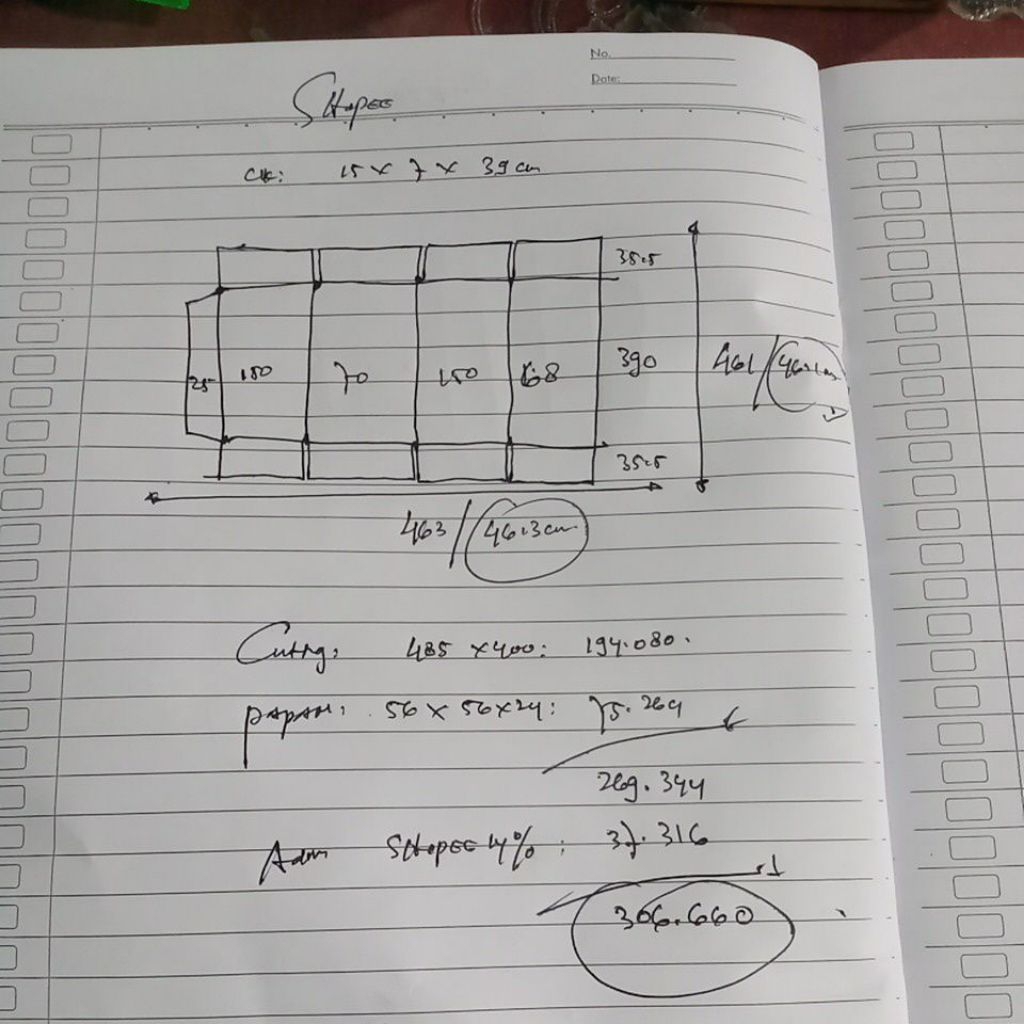 No.
Date:
SHopee
15 x 7 x 39 cm
35.5
25 150 70 150 68 390 461 / 46.1cm
35.5
463 / 46.3cm
Cutting: 485 x 400: 194.080.
PAPAN: 56 x 56 x 24: 75.264
269.344
Adm SHOPEE 14%: 37.316
306.660